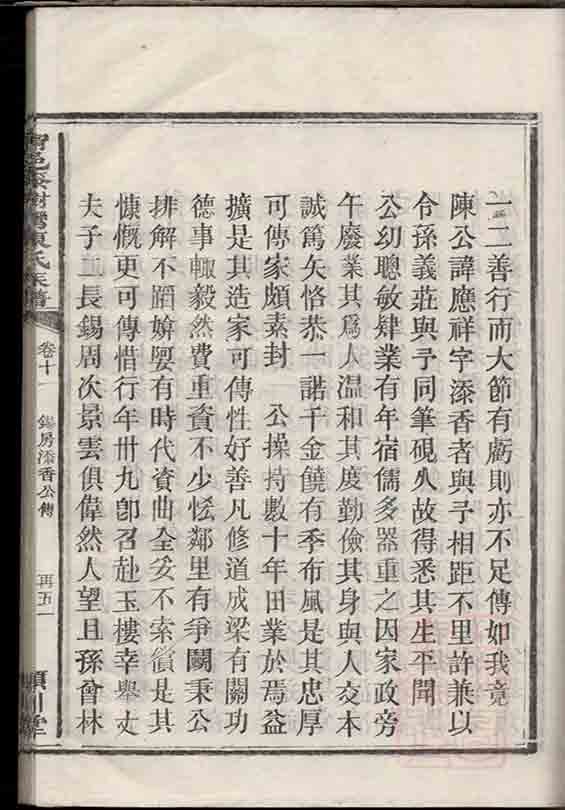 一二善行而大節有虧則亦不足傳如我竟
陳公諱應祥字添香者與予相距不里許兼以
令孫義莊與予同筆硯久故得悉其生平聞
公幼聰敏肄業有年宿儒多器重之因家政旁
午廢業其爲人溫和其度勤儉其身與人交本
誠篤矢恪恭一諾千金饒有季布風是其忠厚
可傳家頗素封 公操持數十年田業於焉益
擴是其造家可傳性好善凡修道成梁有關功
德事輙毅然費重資不少恡鄰里有爭鬭秉公
排解不蹈媕婀有時代資曲全妥不索償是其
慷慨更可傳惜行年卅九卽召赴玉樓幸舉丈
夫子二長錫周次景雲俱偉然人望且孫曾林
氏族譜
卷十一
錫房添香公傳
再五一
潁川堂